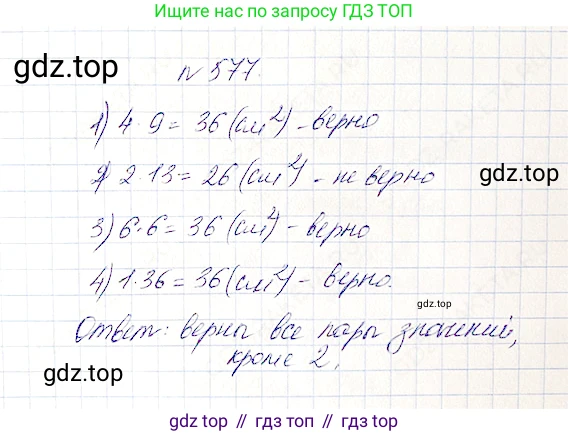 Ищите нас по запросу ГДЗ ТОП
gdz.top
№ 577.
1) 4 · 9 = 36 (см²) - верно
2) 2 · 13 = 26 (см²) - не верно
gdz.top
3) 6 · 6 = 36 (см²) - верно
4) 1 · 36 = 36 (см²) - верно.
gdz.top
Ответ: верны все пары значений,
кроме 2.
gdz.top
gdz.top // гдз топ // гдз.топ